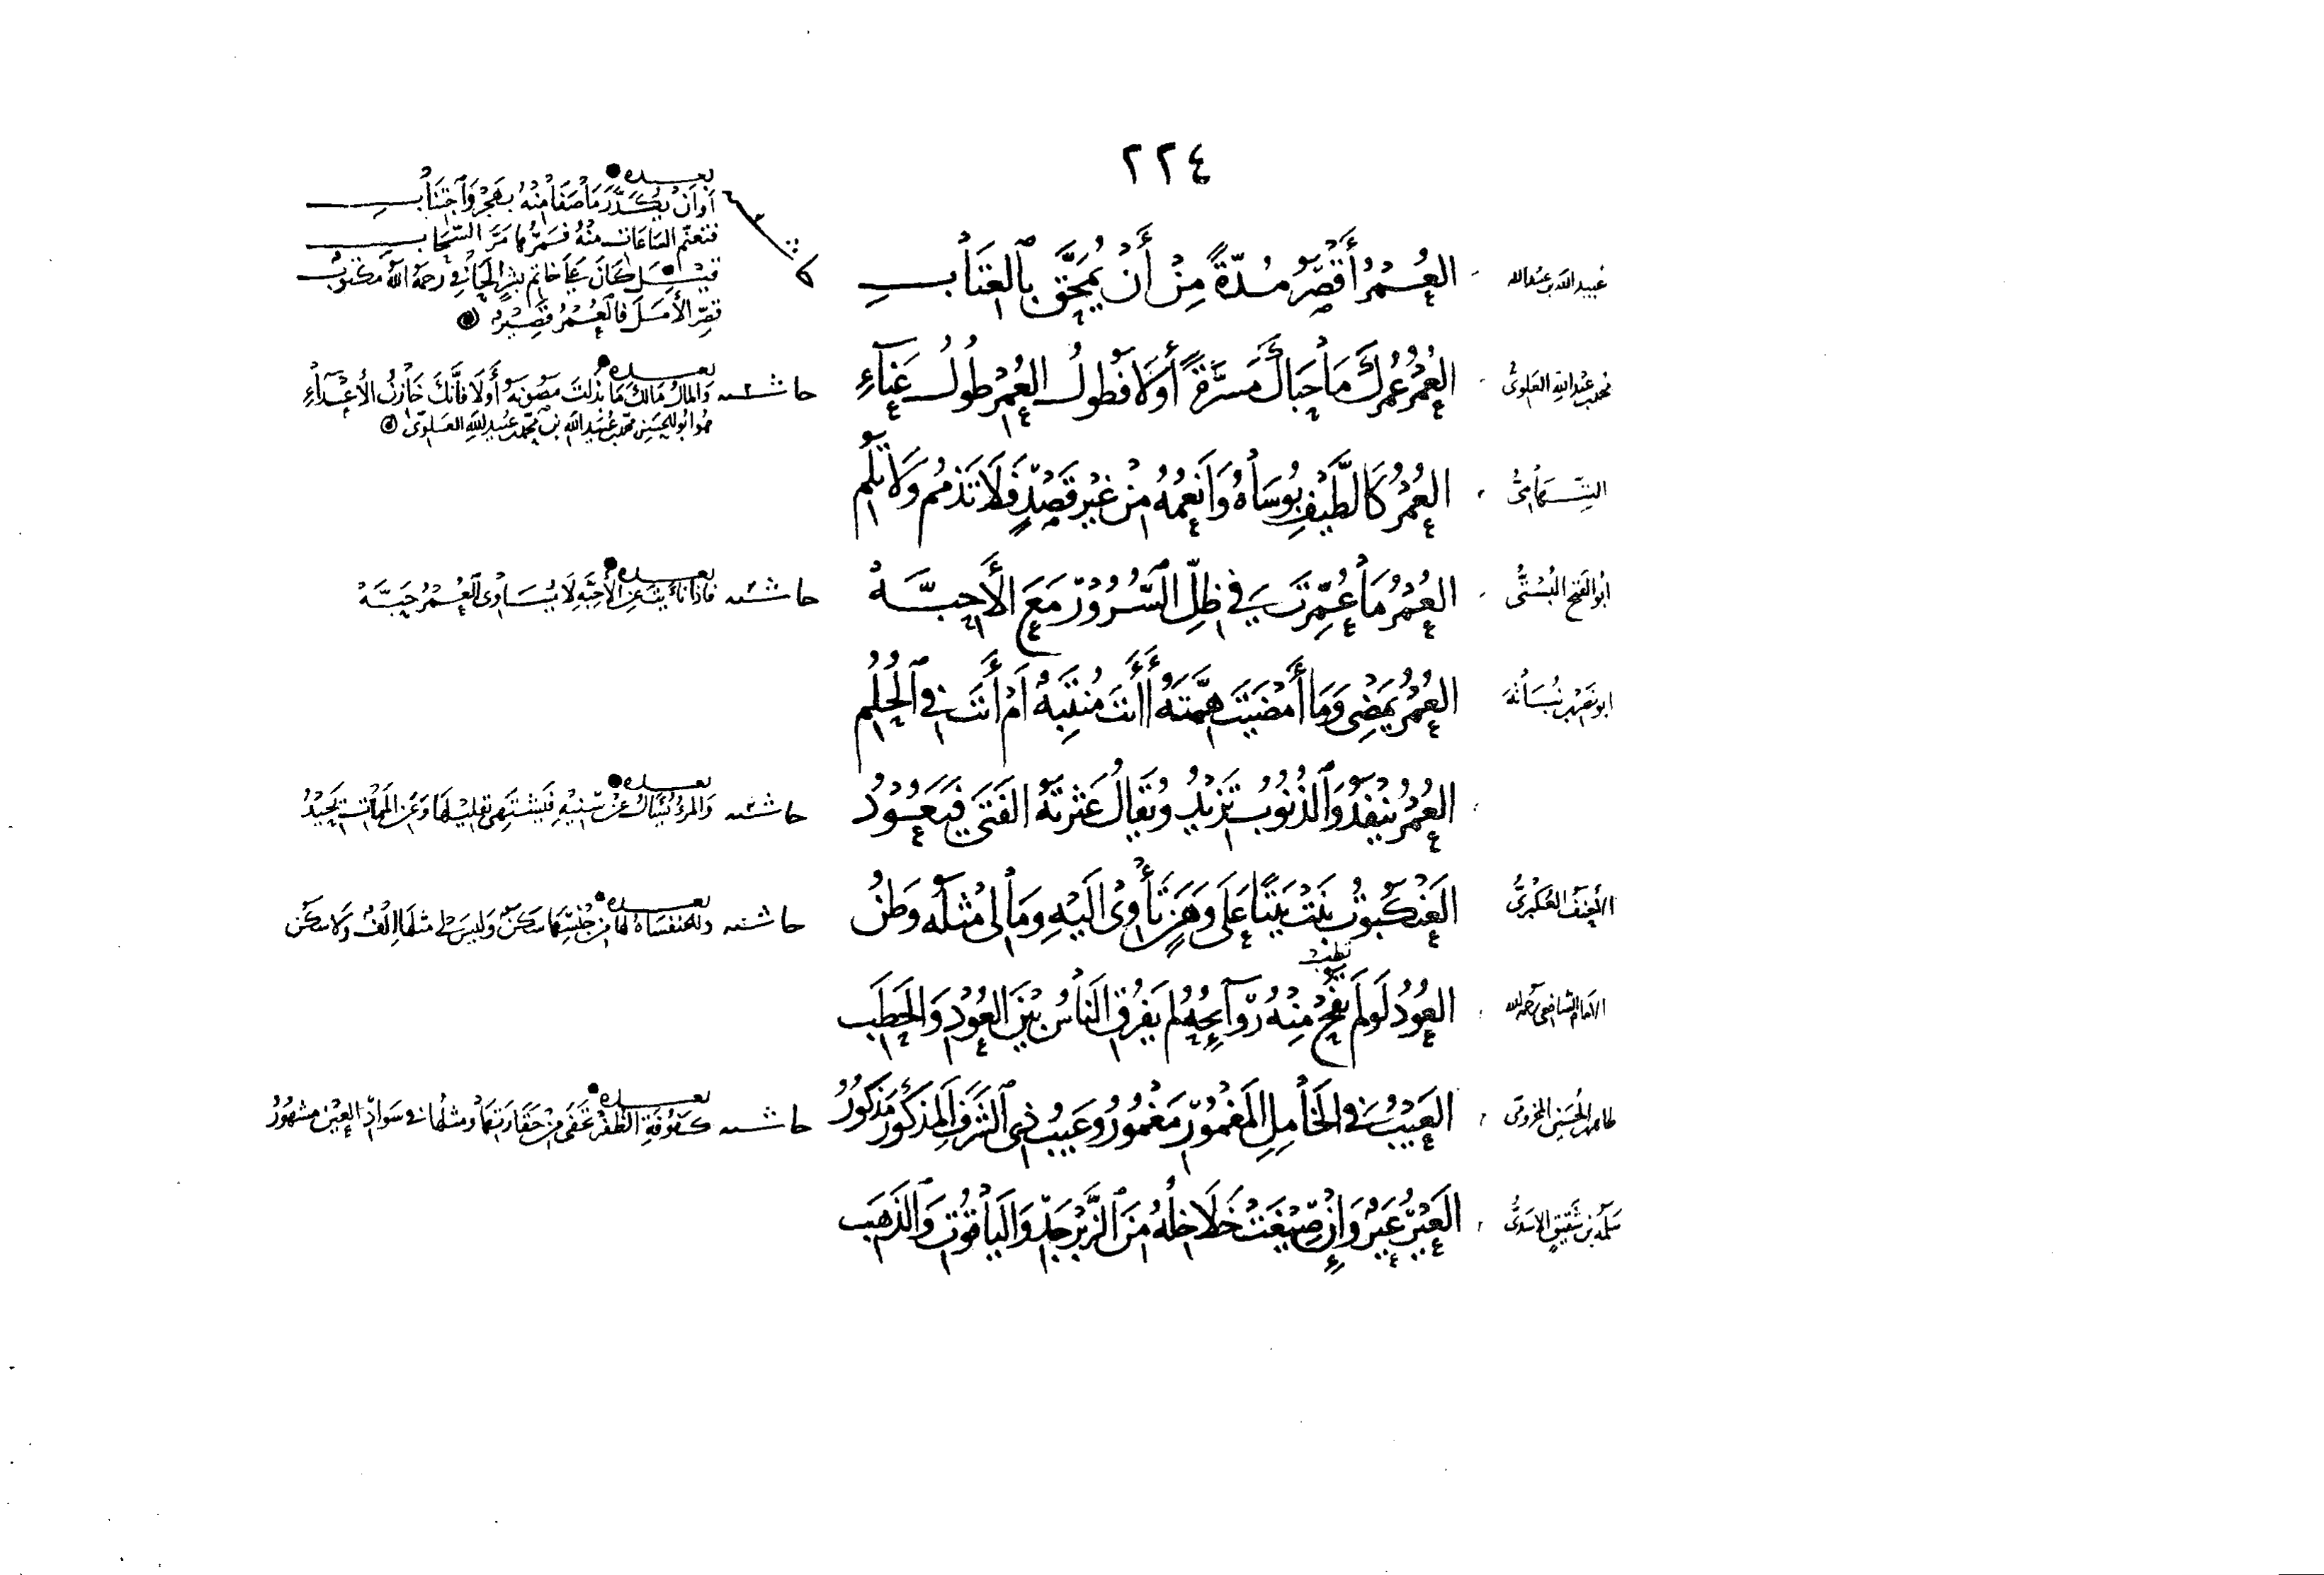 ٢٢٤
عبيد الله بن عبد الله
العُمْرُ أَقْصَرُ مُدَّةً مِنْ أَنْ يُمَحَّقَ بِالعِتَابِ
بعده
أَوْ أَنْ يُكَدَّرَ مَا صَفَا مِنْهُ بِهَجْرٍ وَاجْتِنَابِ
فتغنّم الساعات منه فمرّها مرّ السحاب
قيل كان على خاتم بشر الحافي رحمه الله مكتوب
قصّر الأمل فالعمر قصير
محمد بن عبيد الله العلوي
العُمْرُ عُمْرُكَ مَا حَبَاكَ مَسَرَّةً أَوْ لَا فَطُولُ العُمْرِ طُولُ عَنَاءِ
حاشية بعده
وَالمالُ مَالُكَ مَا بَذَلْتَ مَصُونَهُ أَوْلَا فَإِنَّكَ خَازِنُ الأَعْدَاءِ
هو أبو الحسن محمد بن عبيد الله بن محمد بن عبيد الله العلوي
التهامي
العُمْرُ كَالطَّيْفِ بُوسَاهُ وَأَنْعُمُهُ مِنْ غَيْرِ قَصْدٍ فَلَا تَذْمُمْ وَلَا تَلُمِ
أبو الفتح البستي
العُمْرُ مَا عُمِّرْتَ فِي ظِلِّ السُّرُورِ مَعَ الأَحِبَّهْ
حاشية بعده
فاذا نأيت عن الأحبة لا يساوي العمر حبّه
ابو نصر بن نباتة
العُمْرُ يَمْضِي وَمَا أَمْضَيْتَ هِمَّتَهُ أَأَنْتَ مُنْتَبِهٌ أَمْ أَنْتَ فِي الحُلُمِ
العُمْرُ يَنْفَدُ وَالذُّنُوبُ تَزِيدُ وَتُقَالُ عَثْرَتُهُ الفَتَى فَيَعُودُ
حاشية بعده
والمرء يُسأل عن سنيه فيشتهي تقليلها وعن الممات يحيد
الأحنف العكبري
العَنْكَبُوتُ بَنَتْ بَيْتًا عَلَى وَهَنٍ تَأْوِي إِلَيْهِ وَمَا لِي مِثْلَهُ وَطَنُ
حاشية بعده
والخنفساء لها من جنسها سكن وليس لي مثلها إلف ولا سكن
الامام الشافعي رحمه الله
العُودُ لَوْ لَمْ تَفُحْ مِنْهُ رَوَائِحُهُ لَمْ يَفْرُقِ النَّاسُ بَيْنَ العُودِ وَالحَطَبِ
تطب
العَيْبُ فِي الخَامِلِ المَغْمُورِ مَغْمُورُ وَعَيْبُ ذِي الشَّرَفِ المَذْكُورِ مَذْكُورُ
حاشية بعده
كفوفة الظفر تخفى من حقارتها ومثلها في سواد العين مشهور
سلمة بن شقيق الاسدي
العَيْرُ عَيْرٌ وَإِنْ صِيْغَتْ خَلَاخِلُهُ مِنَ الزَّبَرْجَدِ وَاليَاقُوتِ وَالذَّهَبِ